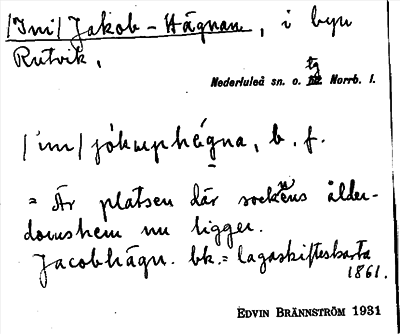 /Ini/ Jakob-Hägnan, i byn
Rutvik,
Nederluleå sn. o. tg Norrb. l.
/ini/ jåkuphęgna, b. f.
= Är platsen där socknens ålder-
domshem nu ligger.
Jacobhägn. bk. = lagaskifteskarta
1861.
EDVIN BRÄNNSTRÖM 1931